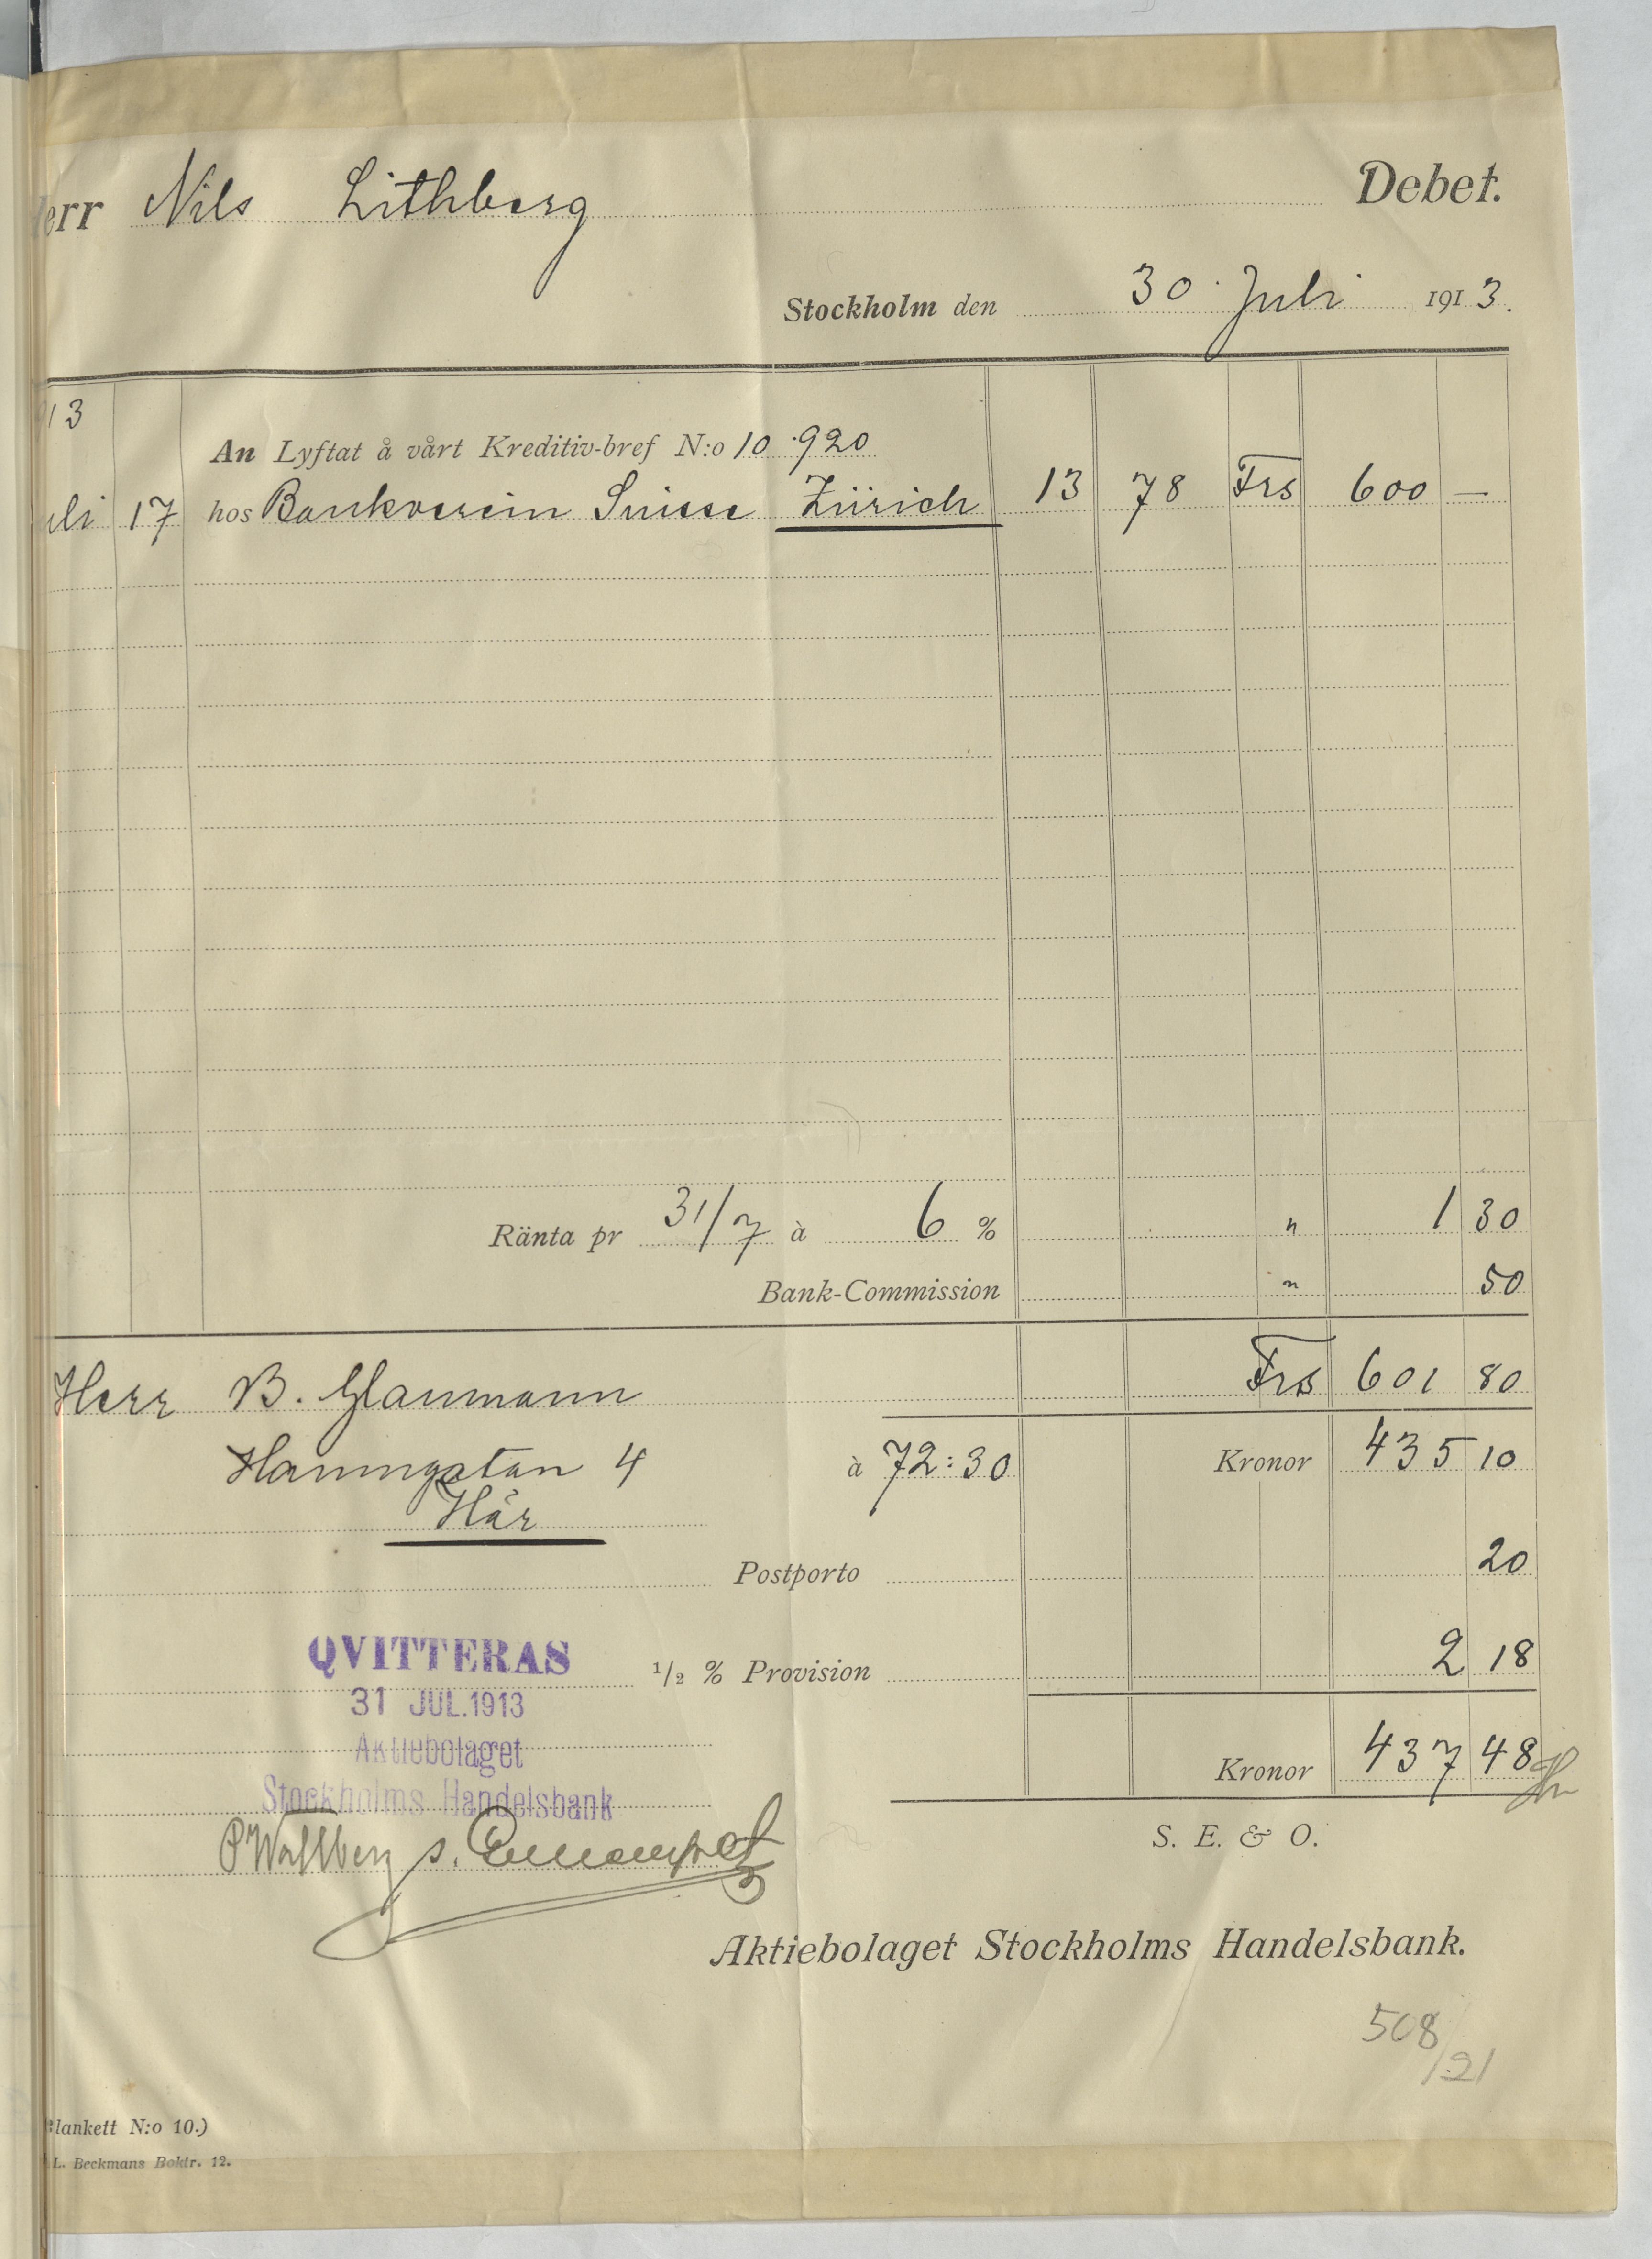 Herr Nils Lithberg Debet.
Stockholm den 30 Juli 1913.
13
An Lyftat å vårt Kreditiv-bref N:o 10.920
uli 17 hos Bankverein Suisse Zürich 13 78 Frs 600 —
Ränta pr 31/7 à 6 % " 1 30
Bank-Commission " 50
Frs 601 80
Herr B. Glaumann
Hamngatan 4 à 72:30 Kronor 435 10
Här
Postporto 20
QVITTERAS
1/2 % Provision 2 18
31 JUL.1913
Aktiebolaget
Kronor 437 48
Stockholms Handelsbank
S. E. & O.
Aktiebolaget Stockholms Handelsbank.
508/21
Blankett N:o 10.)
L. Beckmans Boktr. 12.